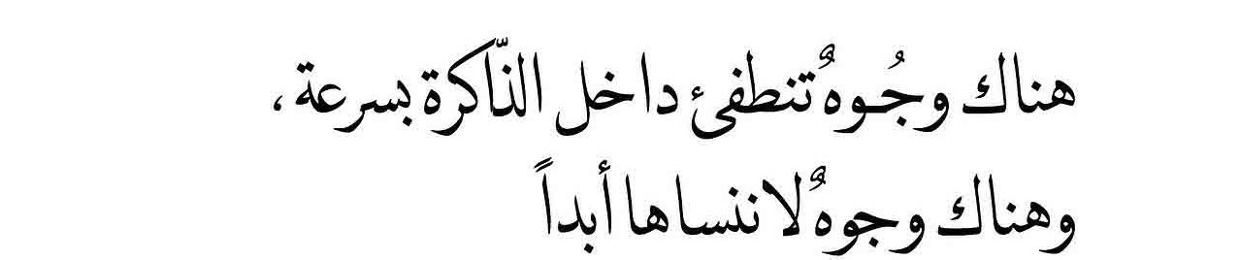 هناك وجُوهٌ تنطفئ داخل الذّاكرة بسرعة ،
وهناك وجوهٌ لا ننساها أبداً